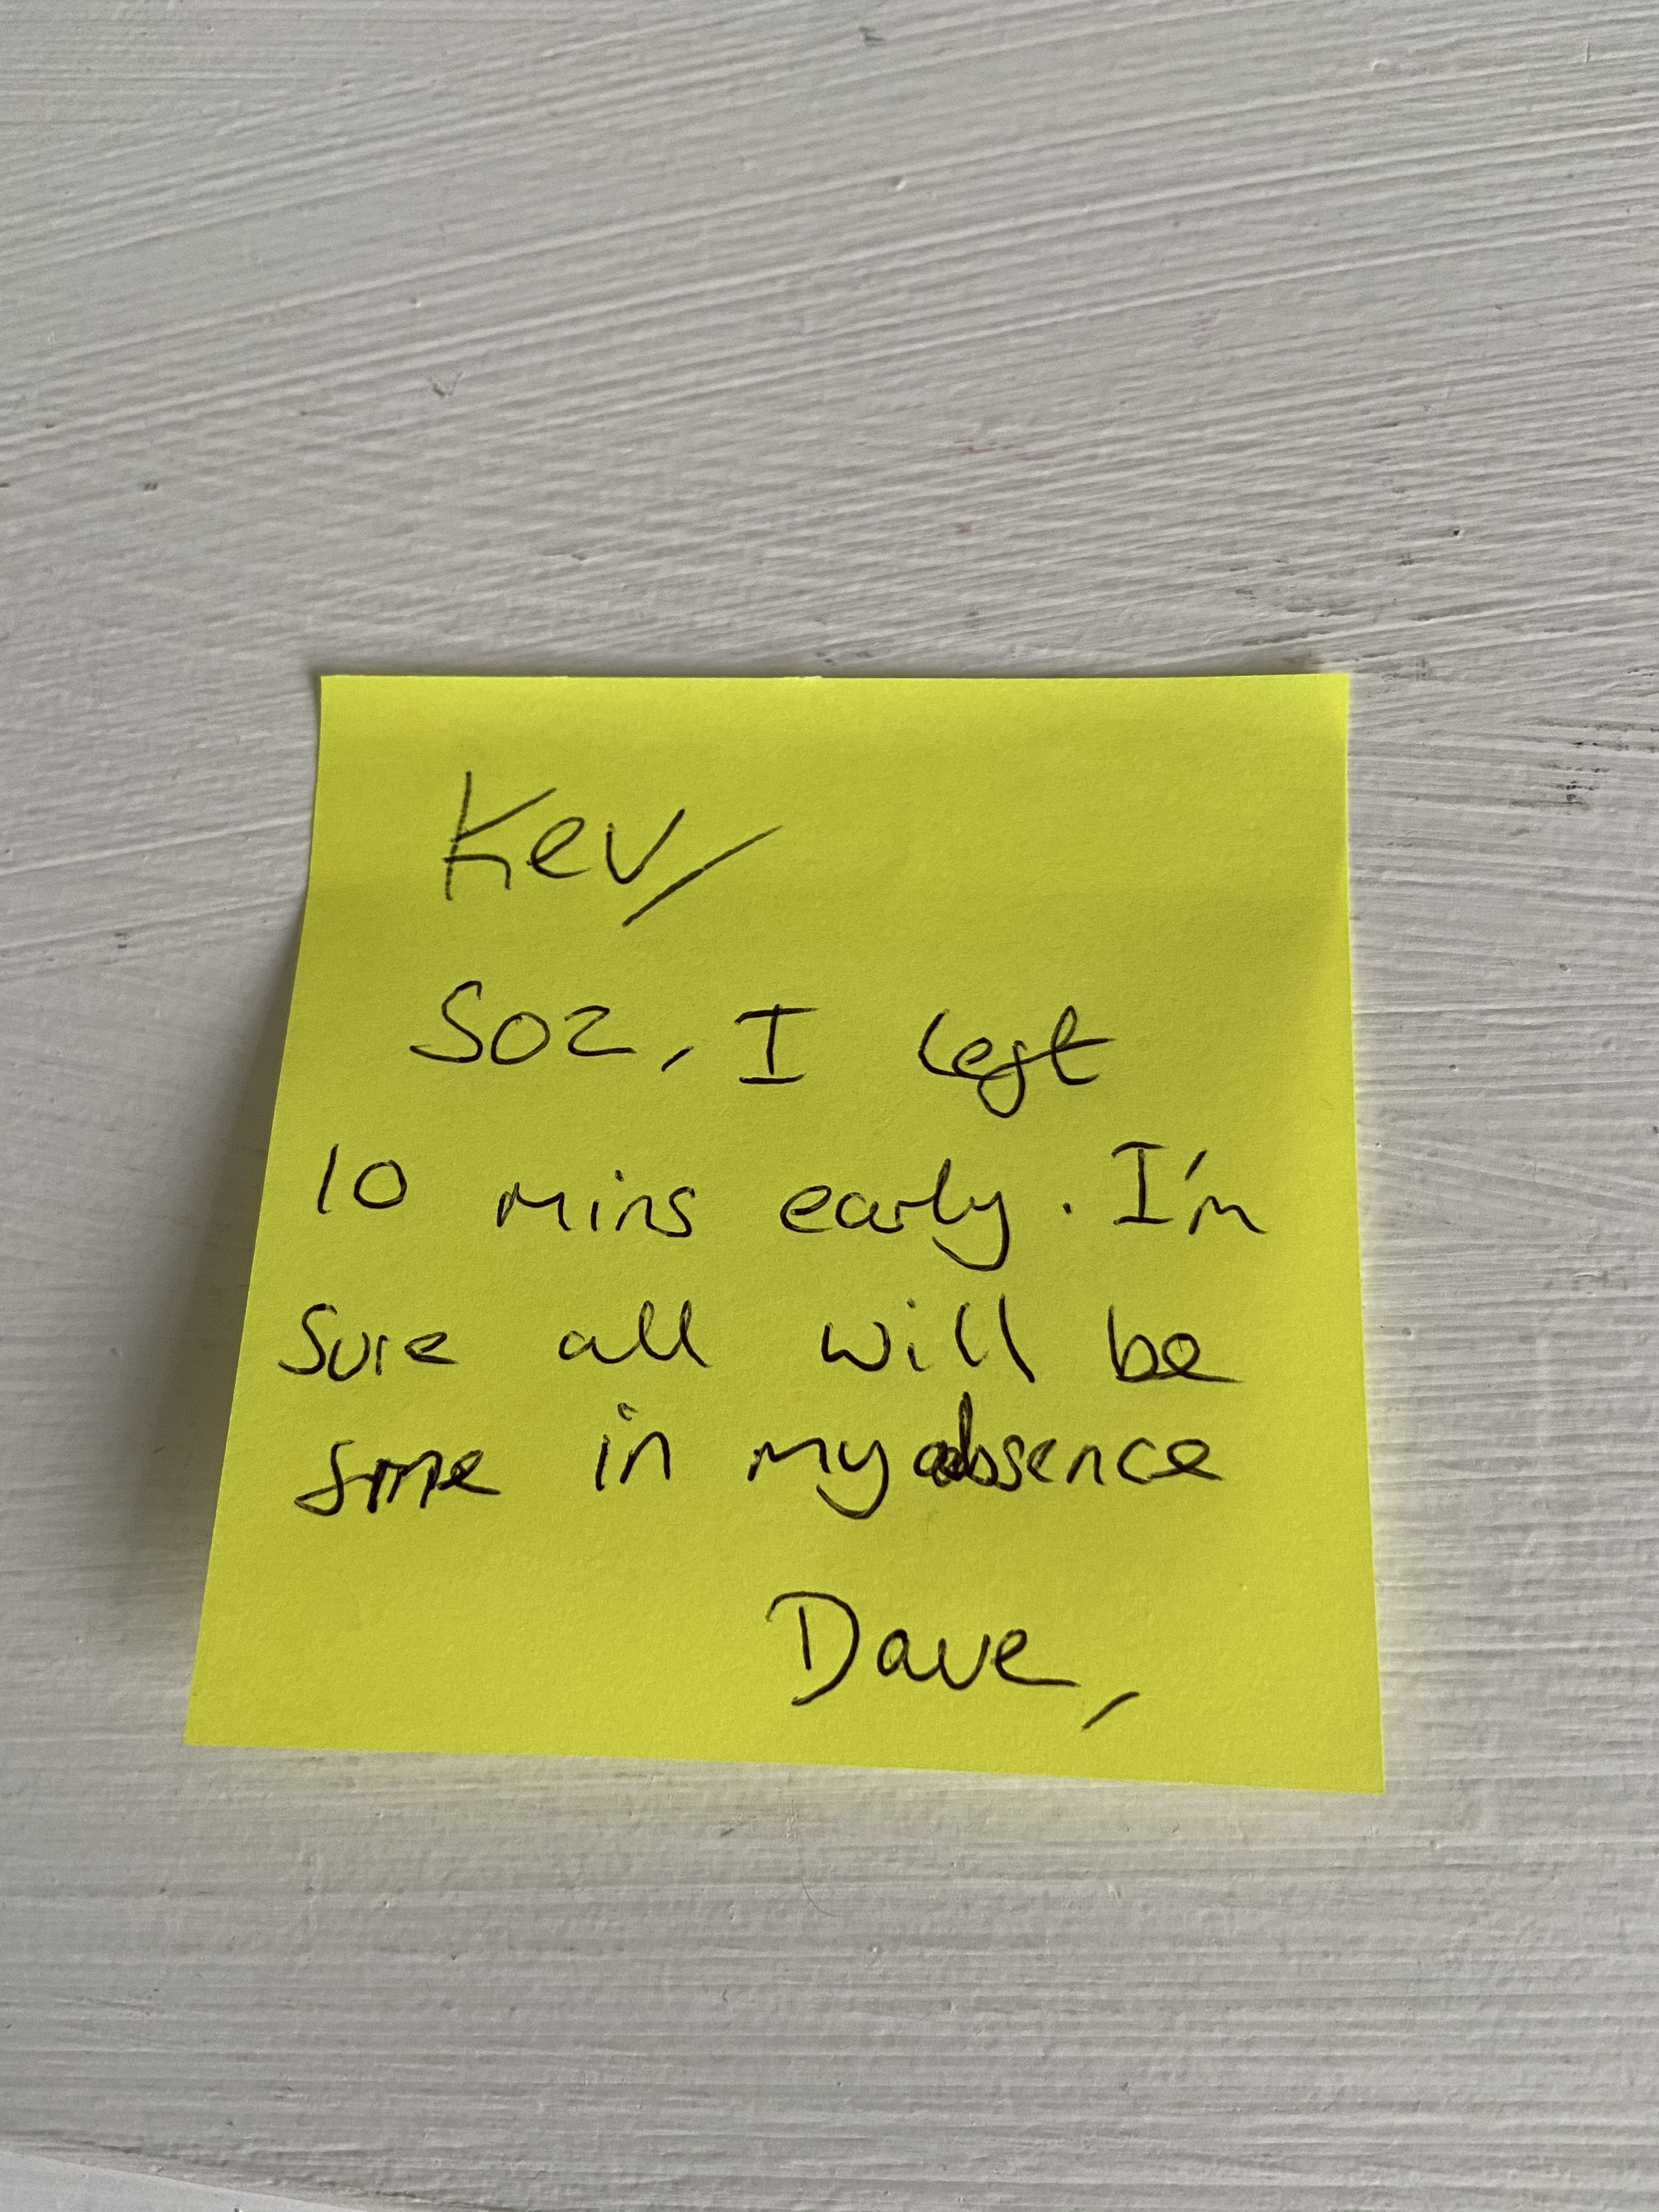 Kev/
Soz, I left
10 mins early. I'm
sure all will be
fine in my absence
Dave,